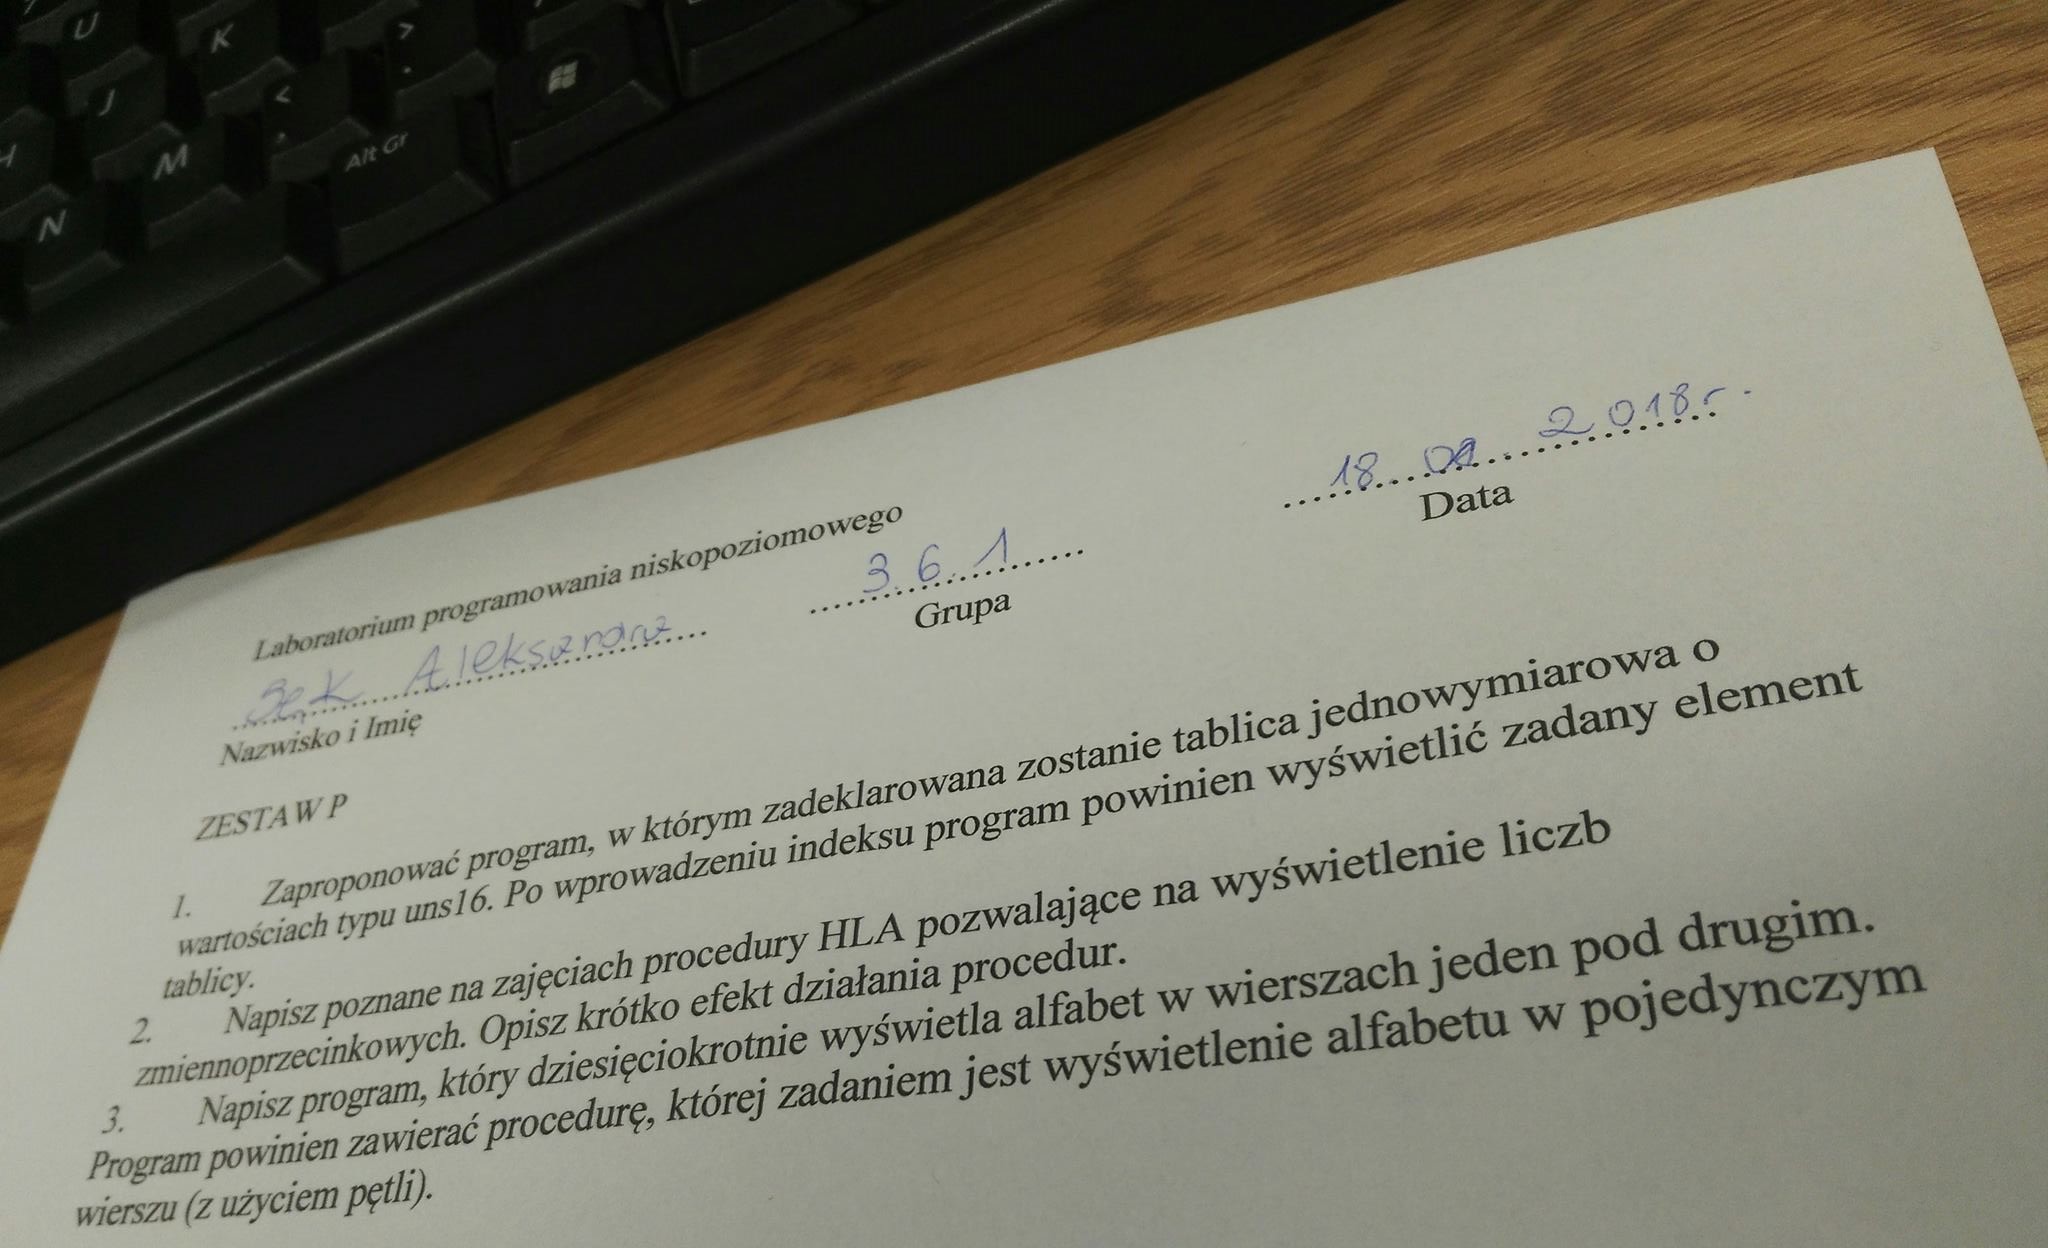 U
K
>
.
H
J
M
<
,
Alt Gr
N
Laboratorium programowania niskopoziomowego
Aleksandra
3.6.1
18 2018r.
Nazwisko i Imię
Grupa
Data
ZESTAW P
1. Zaproponować program, w którym zadeklarowana zostanie tablica jednowymiarowa o
wartościach typu uns16. Po wprowadzeniu indeksu program powinien wyświetlić zadany element
tablicy.
2. Napisz poznane na zajęciach procedury HLA pozwalające na wyświetlenie liczb
zmiennoprzecinkowych. Opisz krótko efekt działania procedur.
3. Napisz program, który dziesięciokrotnie wyświetla alfabet w wierszach jeden pod drugim.
Program powinien zawierać procedurę, której zadaniem jest wyświetlenie alfabetu w pojedynczym
wierszu (z użyciem pętli).